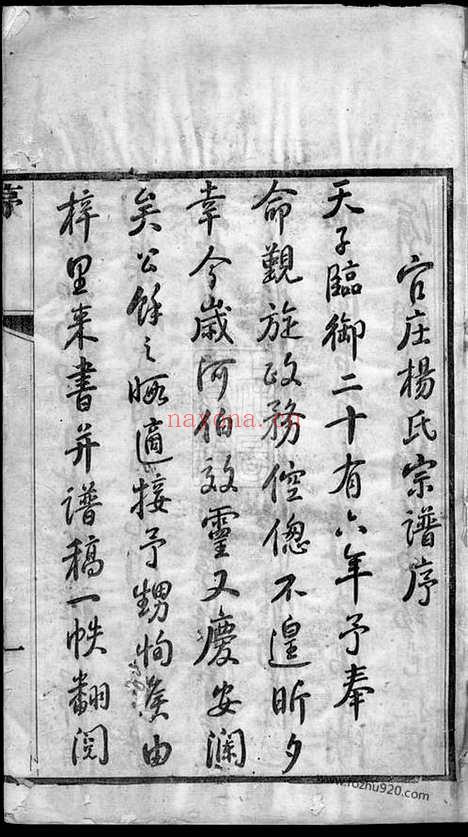 官庄楊氏宗譜序
天子臨御二十有六年予奉
命觀旋政務倥傯不遑昕夕
幸今歲河伯效靈又慶安瀾
矣公餘之暇適接予甥恂侯由
梓里来書并譜稿一帙翻閱
序
一
naxona.cn
www.rozhu920.com